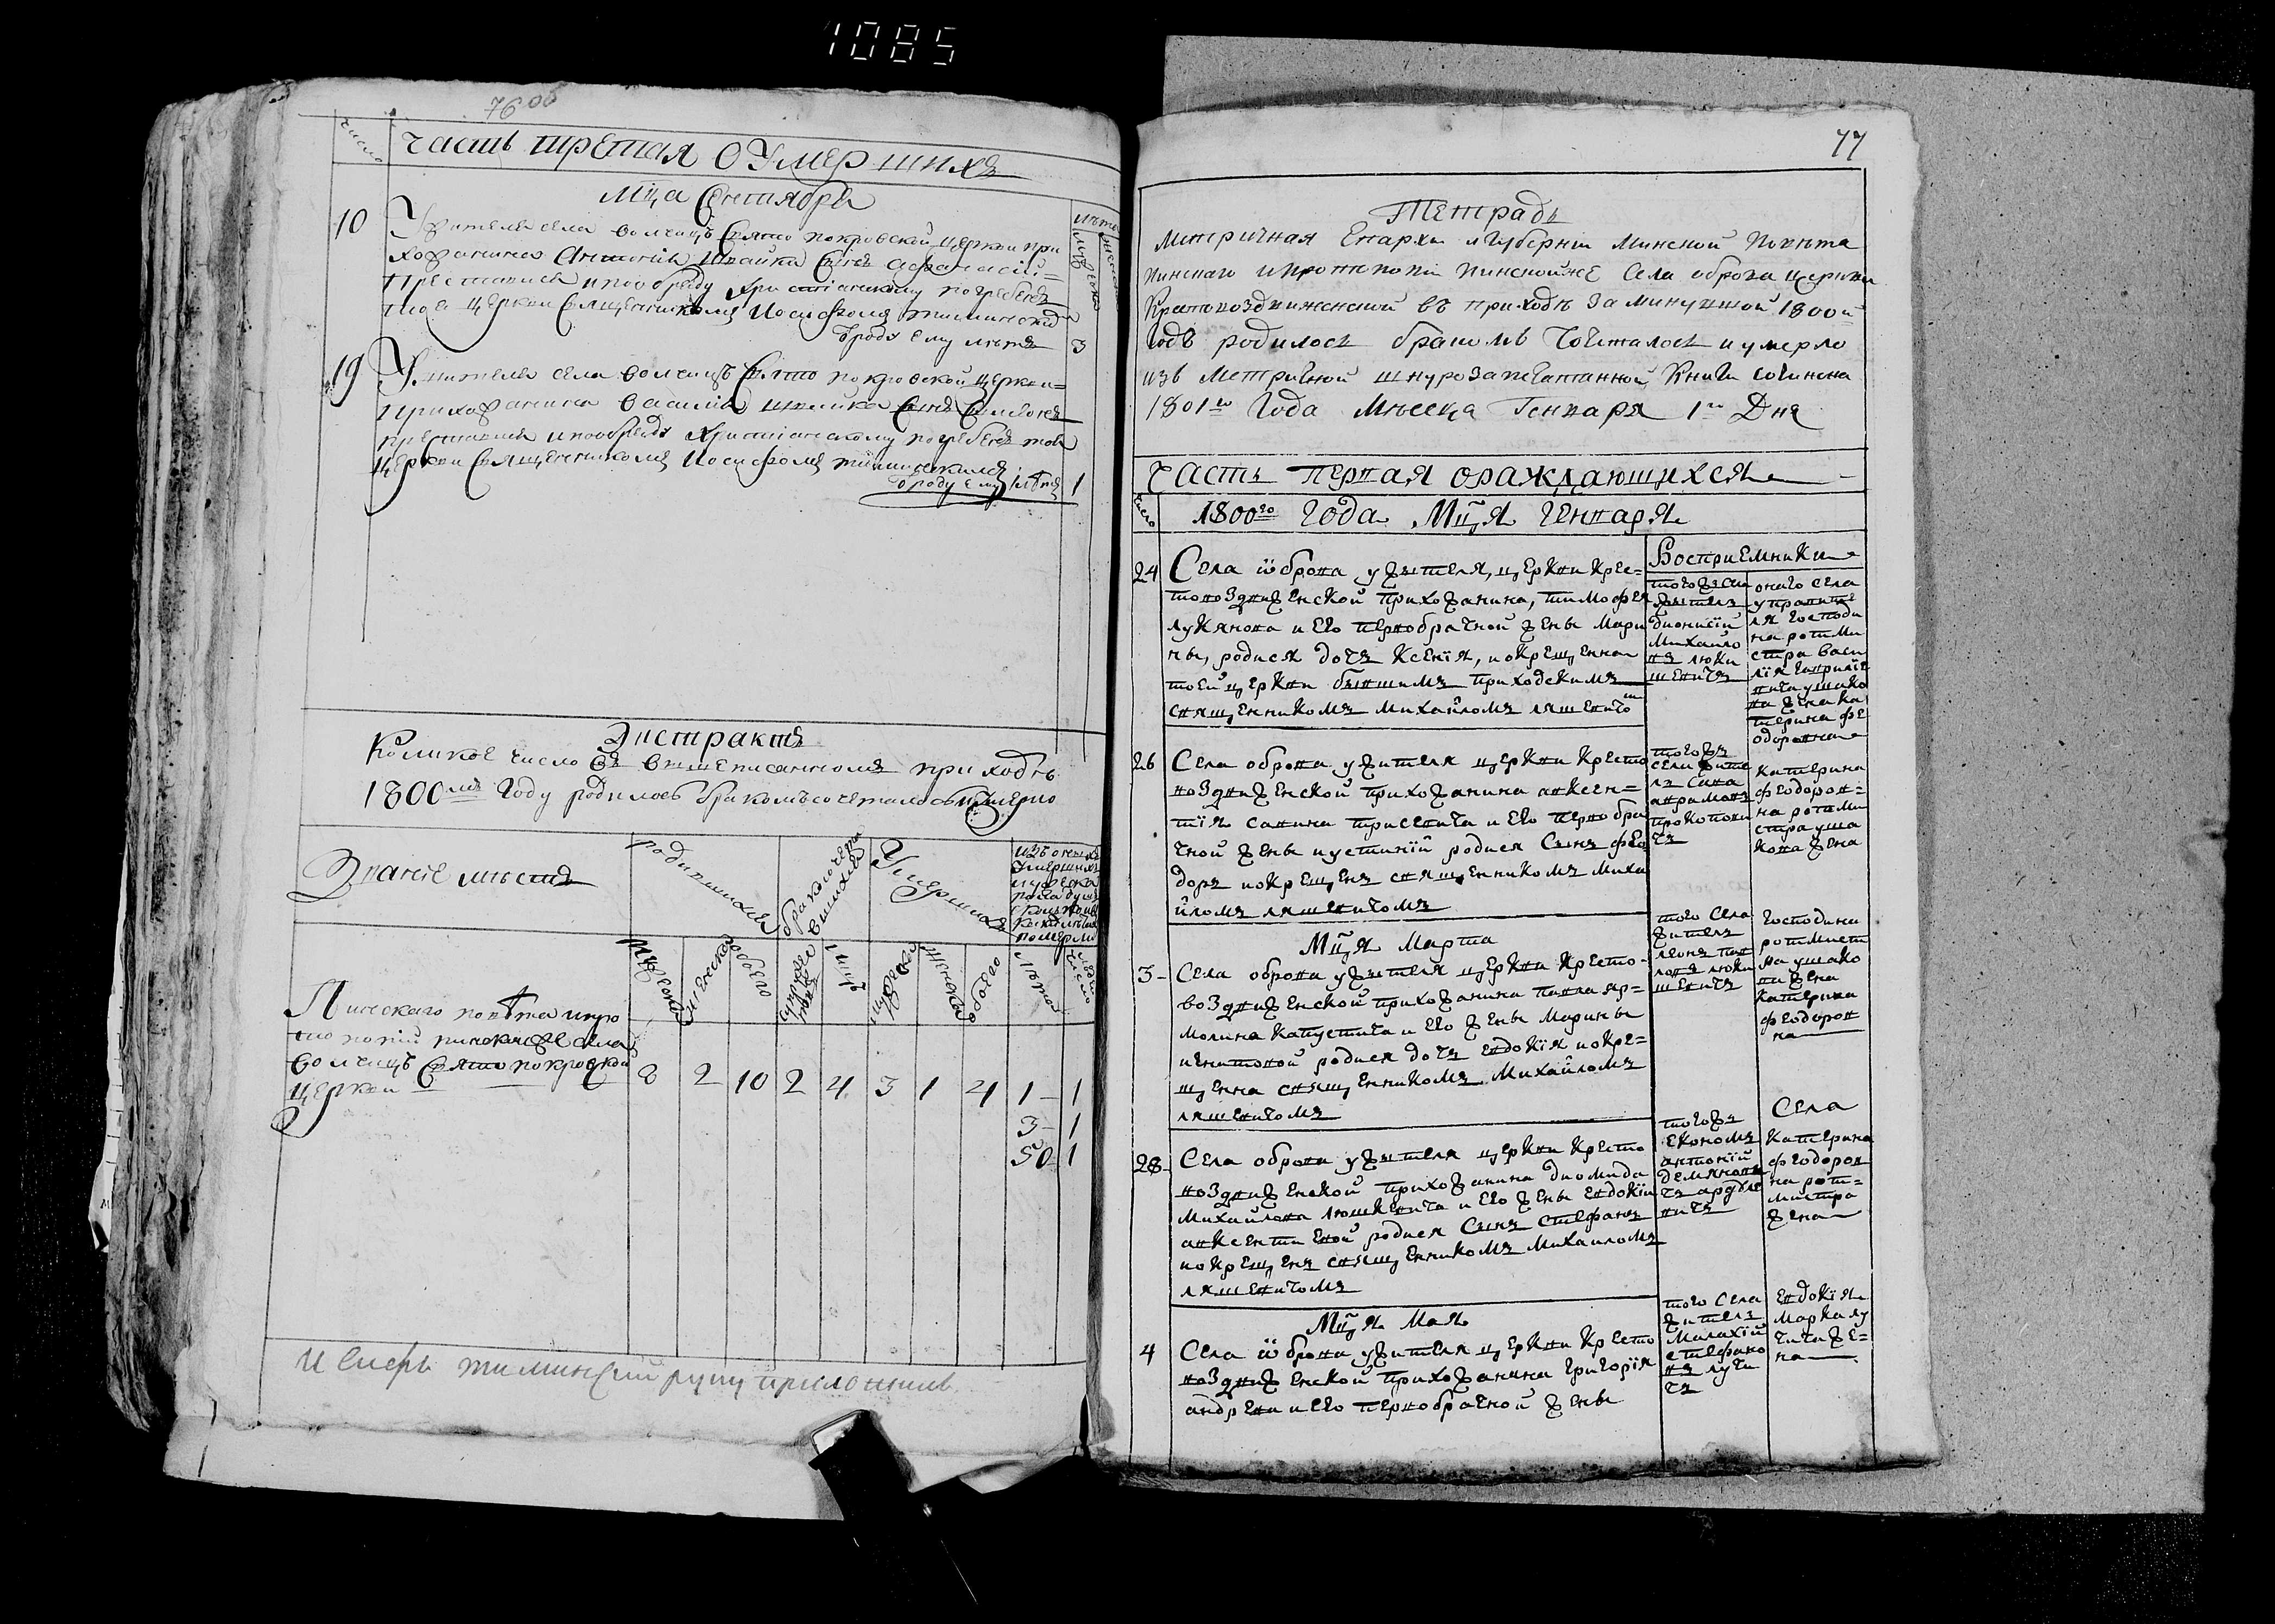 1085
76 об
число
Часть третая о умершихъ
Мца Сентября
лѣта
10
У жителя села волчицъ Свято покровской церкви при
хожанина Антонія Сынъ афанасій
преставися и по обряду христіанскому погребенъ
тоя церкви священникомъ Иосифомъ тиминскимъ
ѿроду ему лѣтъ
3
19
У жителя села волчицъ Свято покровской церкви
прихожанина василія Сынъ Симеонъ
преставися и по обряду христіанскому погребенъ тоя
церкви священникомъ Иосифомъ тиминскимъ
ѿроду ему
1
Экстрактъ
Коликое число въ вышеписанномъ приходѣ
1800мъ Году родилось бракомъ сочеталось и умерло
Званіе мѣстъ
родившихся
бракосочетавшихся
Умершихъ
изъ оныхъ
умершихъ
померли
мужеска
женска
обоего
мужеска
женска
обоего
лѣта
число
Пинскаго повѣта и про
топопіи пинской же села
волчицъ Свято покровской
церкви
8 2 10 2 4 3 1 4 1 1
3 1
50 1
Иерей тиминский руку приложилъ
77
Тетрадь
Метричная Епархіи и Губерніи Минской Повѣта
Пинскаго и протопопіи пинской же Села оброва церкви
Крестовоздвиженской въ приходѣ за минувшой 1800й
Годъ родилось бракомъ Сочеталось и умерло
изъ Метричной шнурозапечатанной Книги сочинена
1801го Года Мѣсяца Генваря 1го Дня
Часть первая о раждающихся
число
1800го Года Мця Генваря
Восприемники
24
Села оброва у жителя, церкви Крес-
товоздвиженской прихожанина, тимофея
лукянова и Его первобрачной жены Мари
ны, родися дочь Ксенія, и окрещенна
тоей церкви бывшимъ приходскимъ
священникомъ михайломъ ляшевичо
м
житель
дионисій
Михайло
въ люки
шевичъ
оного села
управите
ля Господи
на ротми
стра васи
лія Гаврилѣ
вича ушако
ва жена ка
терина фе
одоровна
26
Села оброва у жителя церкви Кресто
воздвиженской прихожанина авксен-
тія савина трисевича и Его первобра
чной жены иустинїи родися Сынъ фео
доръ и окрещенъ священникомъ миха
йломъ ляшевичомъ
тогожъ
села жите
ль сава
аврамовъ
прокопови
чъ
катерина
феодоров-
на ротми
стра уша
кова жена
Мця Марта
3
Села оброва у жителя церкви Кресто-
воздвиженской прихожанина павла яр-
молина Капустича и Его жены Марины
игнатовой родися дочь Евдокія и окре-
щенна священникомъ Михайломъ
ляшевичомъ
того Села
житель
леонъ пав
ловъ люки
шевичъ
Господина
ротмист
ра ушако
ва жена
Катерина
феодоров
на
28
Села оброва у жителя церкви Кресто
воздвиженской прихожанина диомида
Михайлова люшкевича и Его жены Евдокіи
авксентиевой родися Сынъ Стефанъ
и окрещенъ священникомъ Михаиломъ
ляшевичомъ
тогожъ
Села
економъ
антоній
демянови
чъ
вичъ
Катерина
феодоров
на рот-
мистра
жена
Мця Мая
4
Села оброва у жителя церкви Кресто
воздвиженской прихожанина григорія
андреева и Его первобрачной жены
того Села
житель
Малахій
стефано
въ лучи
чъ
Евдокія
Марка лу
чича же-
на